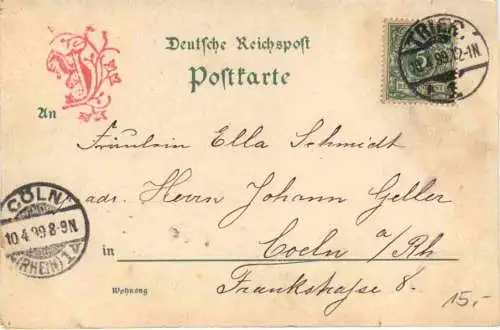 Deutsche Reichspost
Postkarte
TRIER.
99 12-1N
An
Fräulein Ella Schmidt
adr. Herrn Johann Geller
CÖLN
10.4.99 8-9N
(RHEIN) 1
in Coeln a/Rh
Frankstraße 8.
Wohnung
15,-